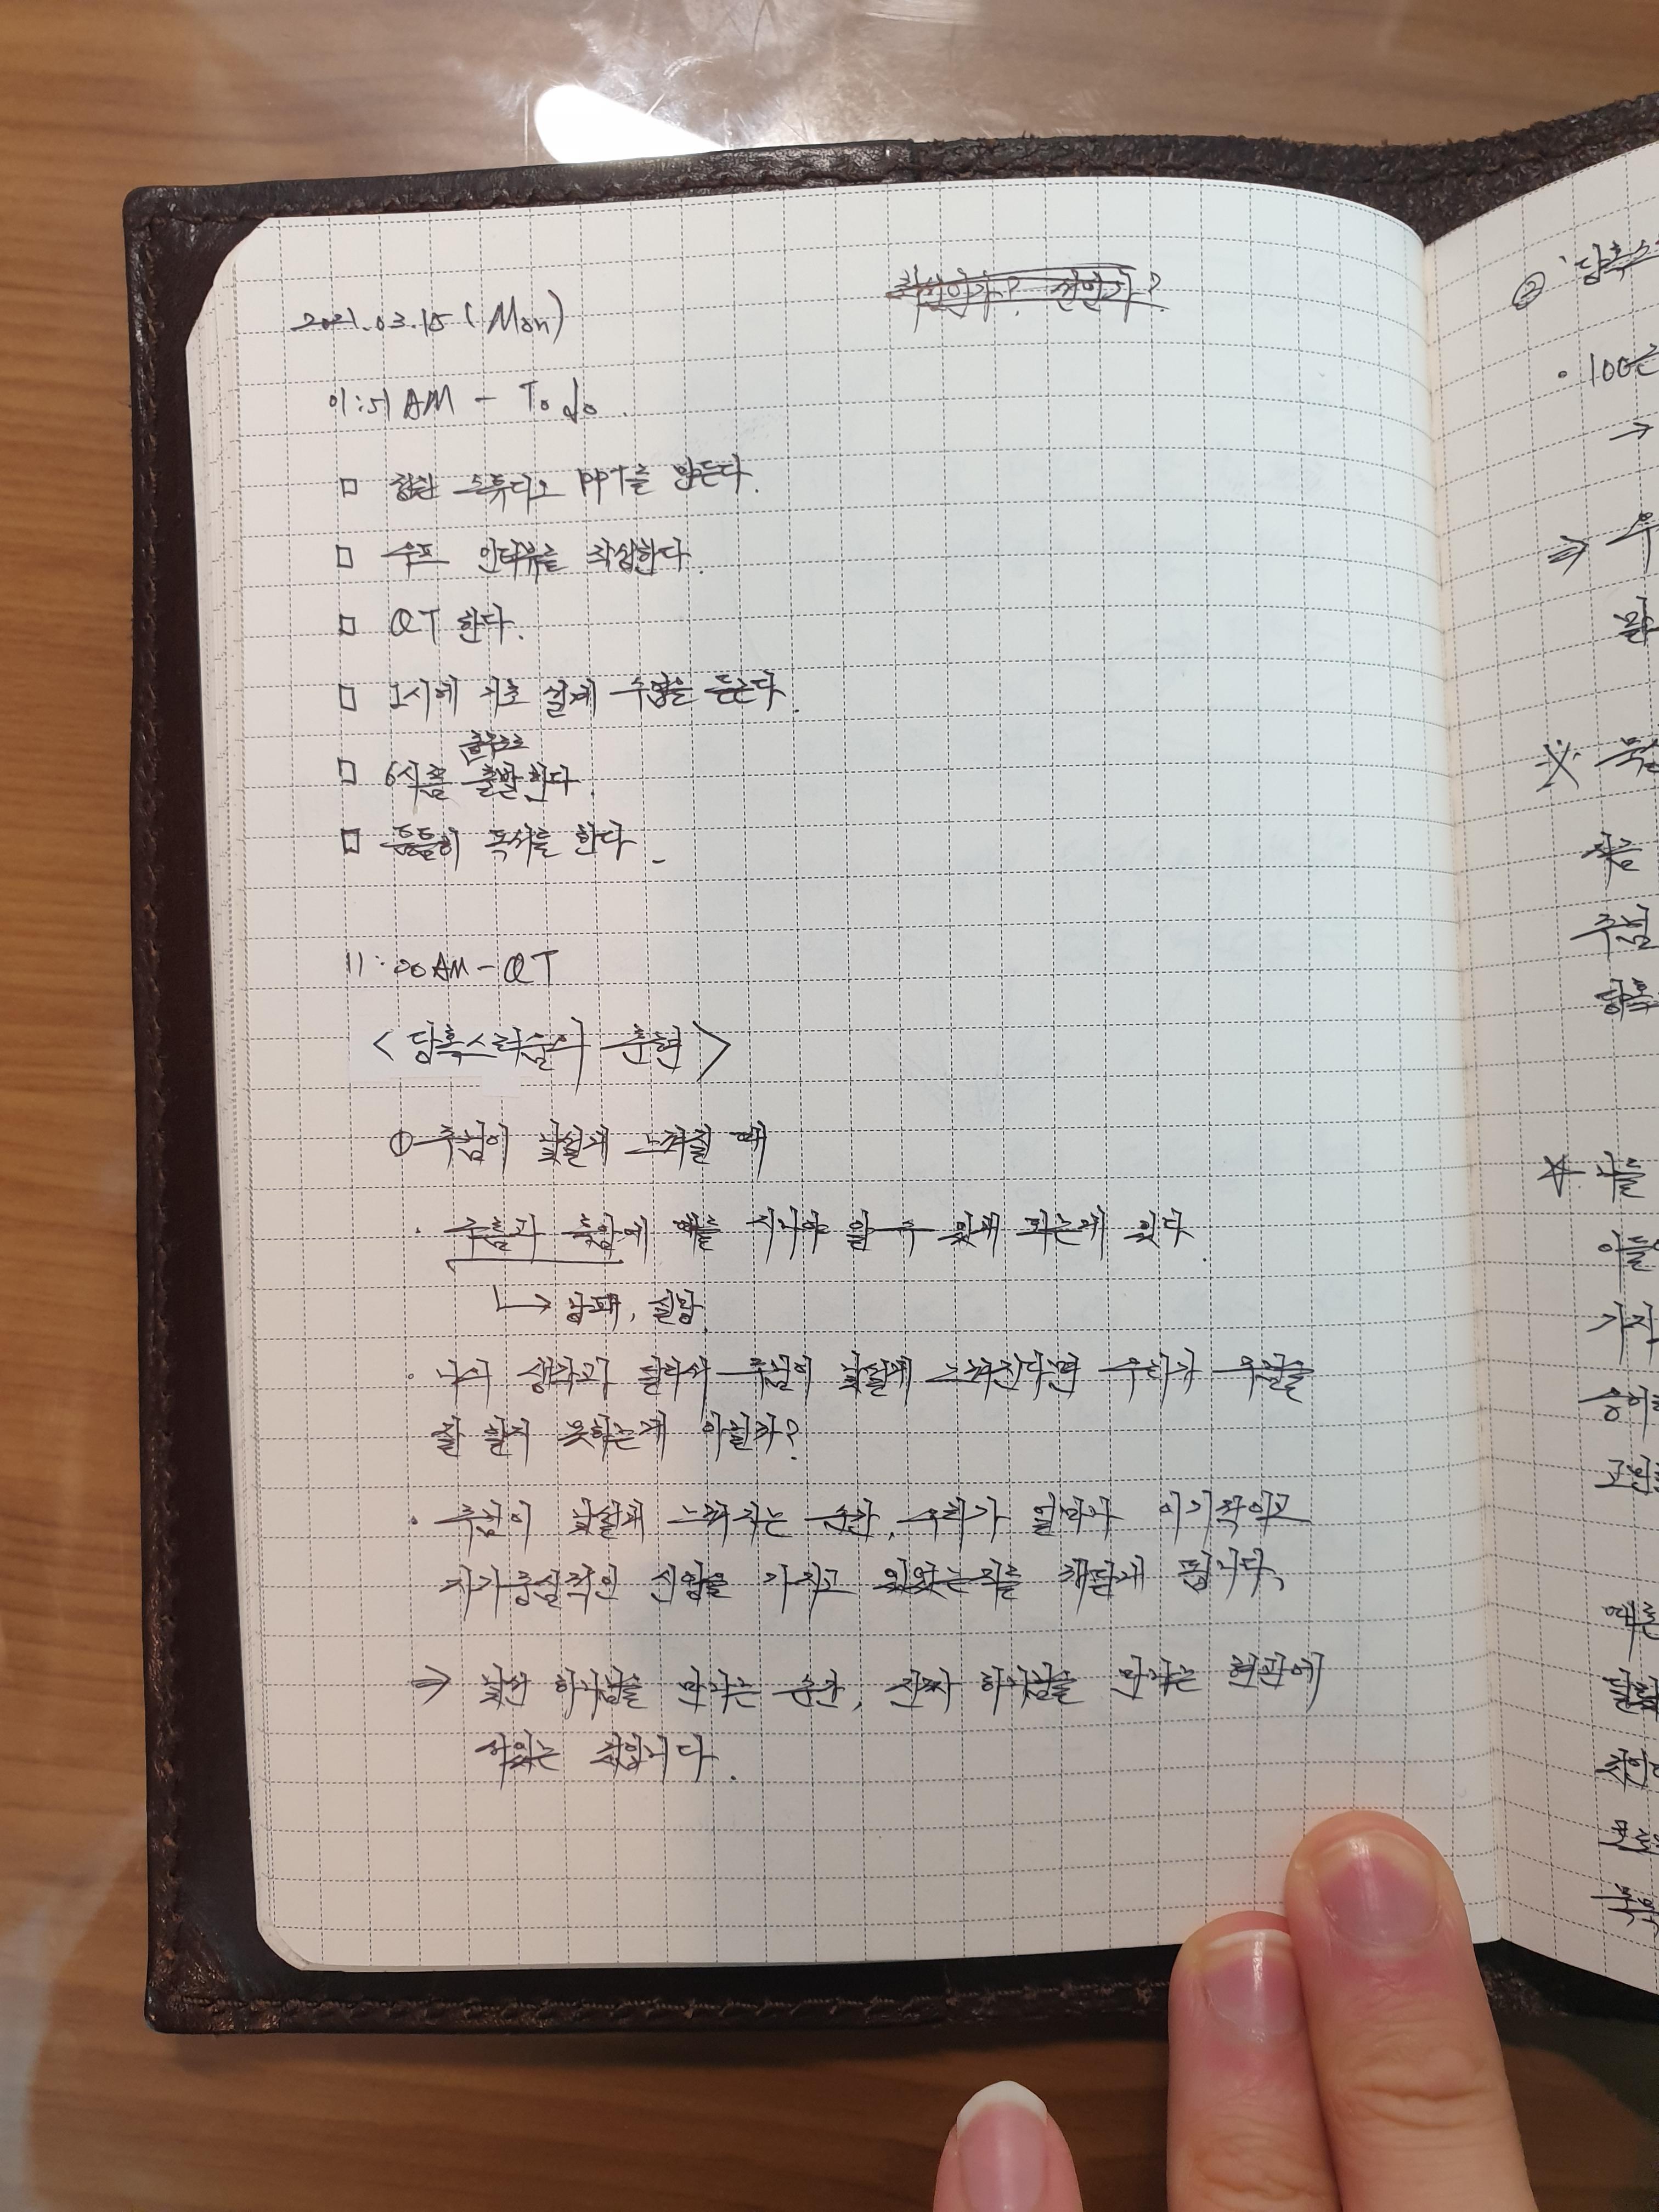 2021.03.15 (Mon)
01:51 AM - To do.
□ 창업 스튜디오 PPT를 만든다.
□ 수프 인터뷰를 작성한다.
□ QT 한다.
□ 1시에 기초 설계 수업을 듣는다.
공주로
□ 6시쯤 출발한다.
□ 틈틈히 독서를 한다.
11:00 AM - QT
<당혹스러움의 훈련>
① 주님이 낯설게 느껴질 때
· 주름과 흑암에 때를 지나야 알 수 있게 되는게 있다.
↳ 낭패, 실망.
· 나의 생각과 달라서 주님이 낯설게 느껴진다면 우리가 주님을
잘 알지 못하는게 아닐까?
· 주님이 낯설게 느껴지는 순간, 우리가 얼마나 이기적이고
자기중심적인 신앙을 가지고 있었는지를 깨닫게 됩니다.
⇒ 낯선 하나님을 만나는 순간, 진짜 하나님을 만나는 현관에
서있는 것입니다.
② '당혹스
· 100
→
⇒ 우
※
지금
주님
당혹
☆ 나를
아들
가지